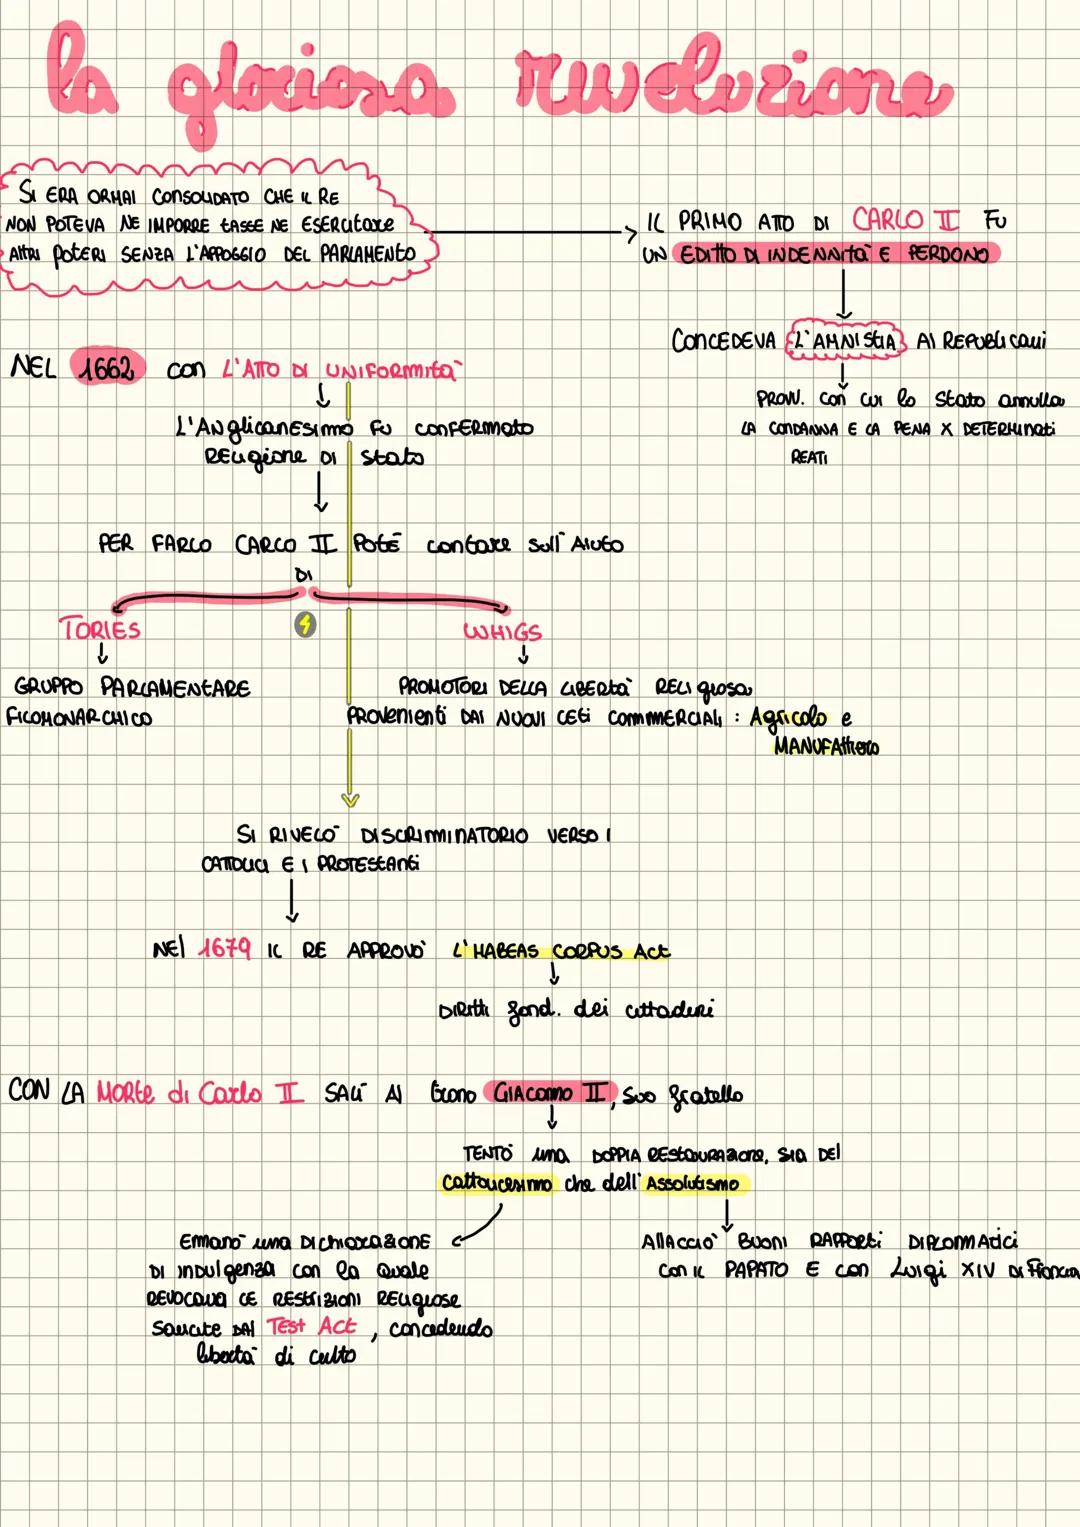 la gloriosa rivoluzione
SI ERA ORMAI CONSOLIDATO CHE IL RE
NON POTEVA NE IMPORRE TASSE NE ESERCITARE
ALTRI POTERI SENZA L'APPOGGIO DEL PARLAMENTO
IL PRIMO ATTO DI CARLO II FU
UN EDITTO DI INDENNITÀ E PERDONO
CONCEDEVA L'AMNISTIA AI REPUBLICANI
PROVV. con cui lo Stato annulla
LA CONDANNA E LA PENA X DETERMINATI
REATI
NEL 1662 con L'ATTO DI UNIFORMITÀ
L'ANglicanesimo FU CONFERMATO
RELIGIONE DI Stato
PER FARLO CARLO II POTÉ contare sull'AIUTO
DI
TORIES
WHIGS
GRUPPO PARLAMENTARE
FILOMONARCHICO
PROMOTORI DELLA LIBERTÀ RELIGIOSA
PROVENIENTI DAI NUOVI CETI COMMMERCIALI : Agricolo e
MANUFATTIERO
SI RIVELÒ DISCRIMINATORIO VERSO I
CATTOLICI E I PROTESTANTI
NEl 1679 IL RE APPROVÒ L'HABEAS CORPUS ACT
DIRITTI fond. dei cittadini
CON LA MORTE di Carlo II SALÌ AI trono GIACOMO II, suo fratello
TENTÒ una DOPPIA RESTAURAZIONE, SIA DEL
Cattolicesimo che dell'Assolutismo
EMANÒ una DICHIARAZIONE
DI INDULGENZA con la quale
REVOCAVA LE RESTRIZIONI RELIGIOSE
SANCITE DAI TEST ACT, concedendo
libertà di culto
AllACCIÒ BUONI RAPPORTI DIPLOMATICI
CON IL PAPATO E con Luigi XIV DI Francia